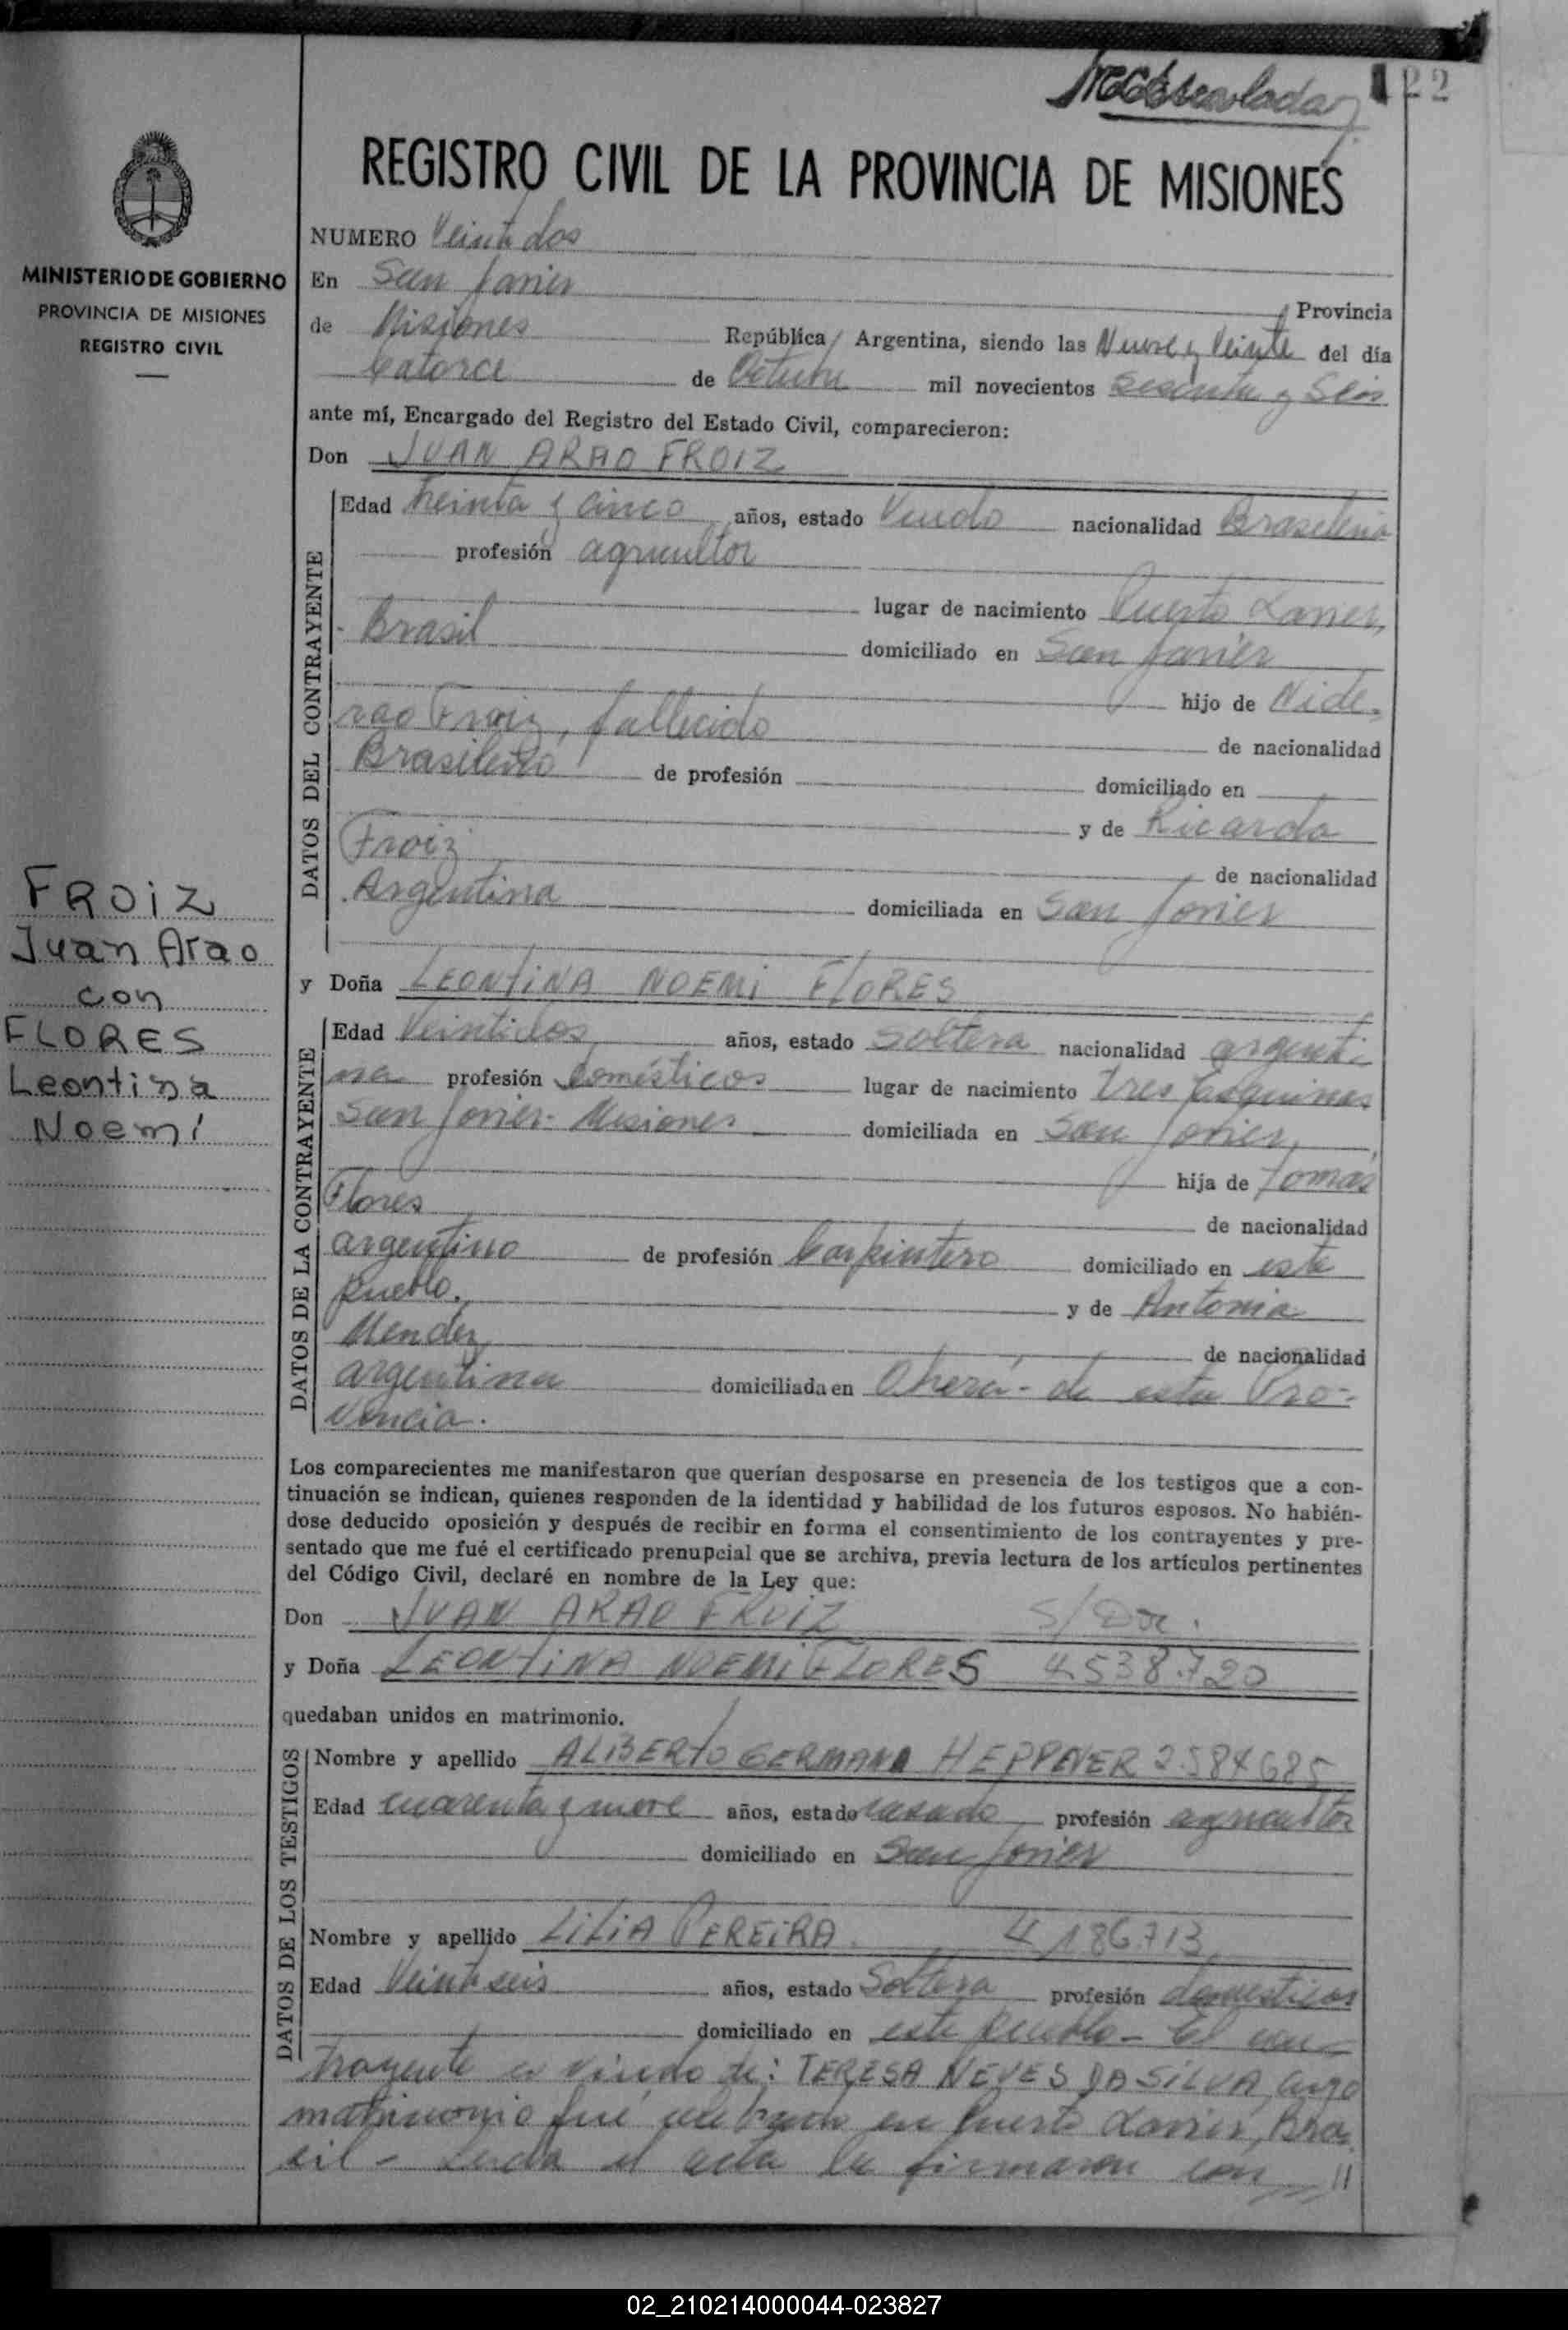 22
REGISTRO CIVIL DE LA PROVINCIA DE MISIONES
MINISTERIO DE GOBIERNO
PROVINCIA DE MISIONES
REGISTRO CIVIL
NUMERO Veintidos
En San Javier Provincia
de Misiones República Argentina, siendo las Nueve y Veinte del día
Catorce de Octubre mil novecientos sesenta y Seis
ante mí, Encargado del Registro del Estado Civil, comparecieron:
Don JUAN ARAO FROIZ
DATOS DEL CONTRAYENTE
Edad treinta y cinco años, estado Viudo nacionalidad Brasileña
profesión agricultor
lugar de nacimiento Puerto Xavier,
Brasil domiciliado en San Javier
hijo de Nide-
rao Froiz, fallecido de nacionalidad
Brasileño de profesión domiciliado en
y de Ricarda
Froiz de nacionalidad
Argentina domiciliada en San Javier
FROIZ
Juan Arao
con
FLORES
Leontina
Noemí
y Doña LEONTINA NOEMI FLORES
DATOS DE LA CONTRAYENTE
Edad Veintidos años, estado Soltera nacionalidad argenti
na profesión domésticos lugar de nacimiento tres Esquinas
San Javier- Misiones domiciliada en San Javier,
hija de Tomás
Flores de nacionalidad
argentino de profesión Carpintero domiciliado en este
pueblo. y de Antonia
Mendez de nacionalidad
argentina domiciliada en Oberá- de esta Pro-
vincia.
Los comparecientes me manifestaron que querían desposarse en presencia de los testigos que a con-
tinuación se indican, quienes responden de la identidad y habilidad de los futuros esposos. No habién-
dose deducido oposición y después de recibir en forma el consentimiento de los contrayentes y pre-
sentado que me fué el certificado prenupcial que se archiva, previa lectura de los artículos pertinentes
del Código Civil, declaré en nombre de la Ley que:
Don JUAN ARAO FROIZ S/Doc.
y Doña LEONTINA NOEMI FLORES 4.538.720
quedaban unidos en matrimonio.
DATOS DE LOS TESTIGOS
Nombre y apellido ALBERTO GERMANO HEPPENER 2.584685
Edad cuarenta y nueve años, estado casado profesión agricultor
domiciliado en San Javier
Nombre y apellido LILIA PEREIRA. 4.186.713
Edad Veintiseis años, estado Soltera profesión domesticos
domiciliado en este pueblo- El con-
trayente es viudo de: TERESA NEVES DA SILVA, cuyo
matrimonio fué celebrado en Puerto Xavier, Bra-
sil - Leida el acta la firmaron con //
02_210214000044-023827